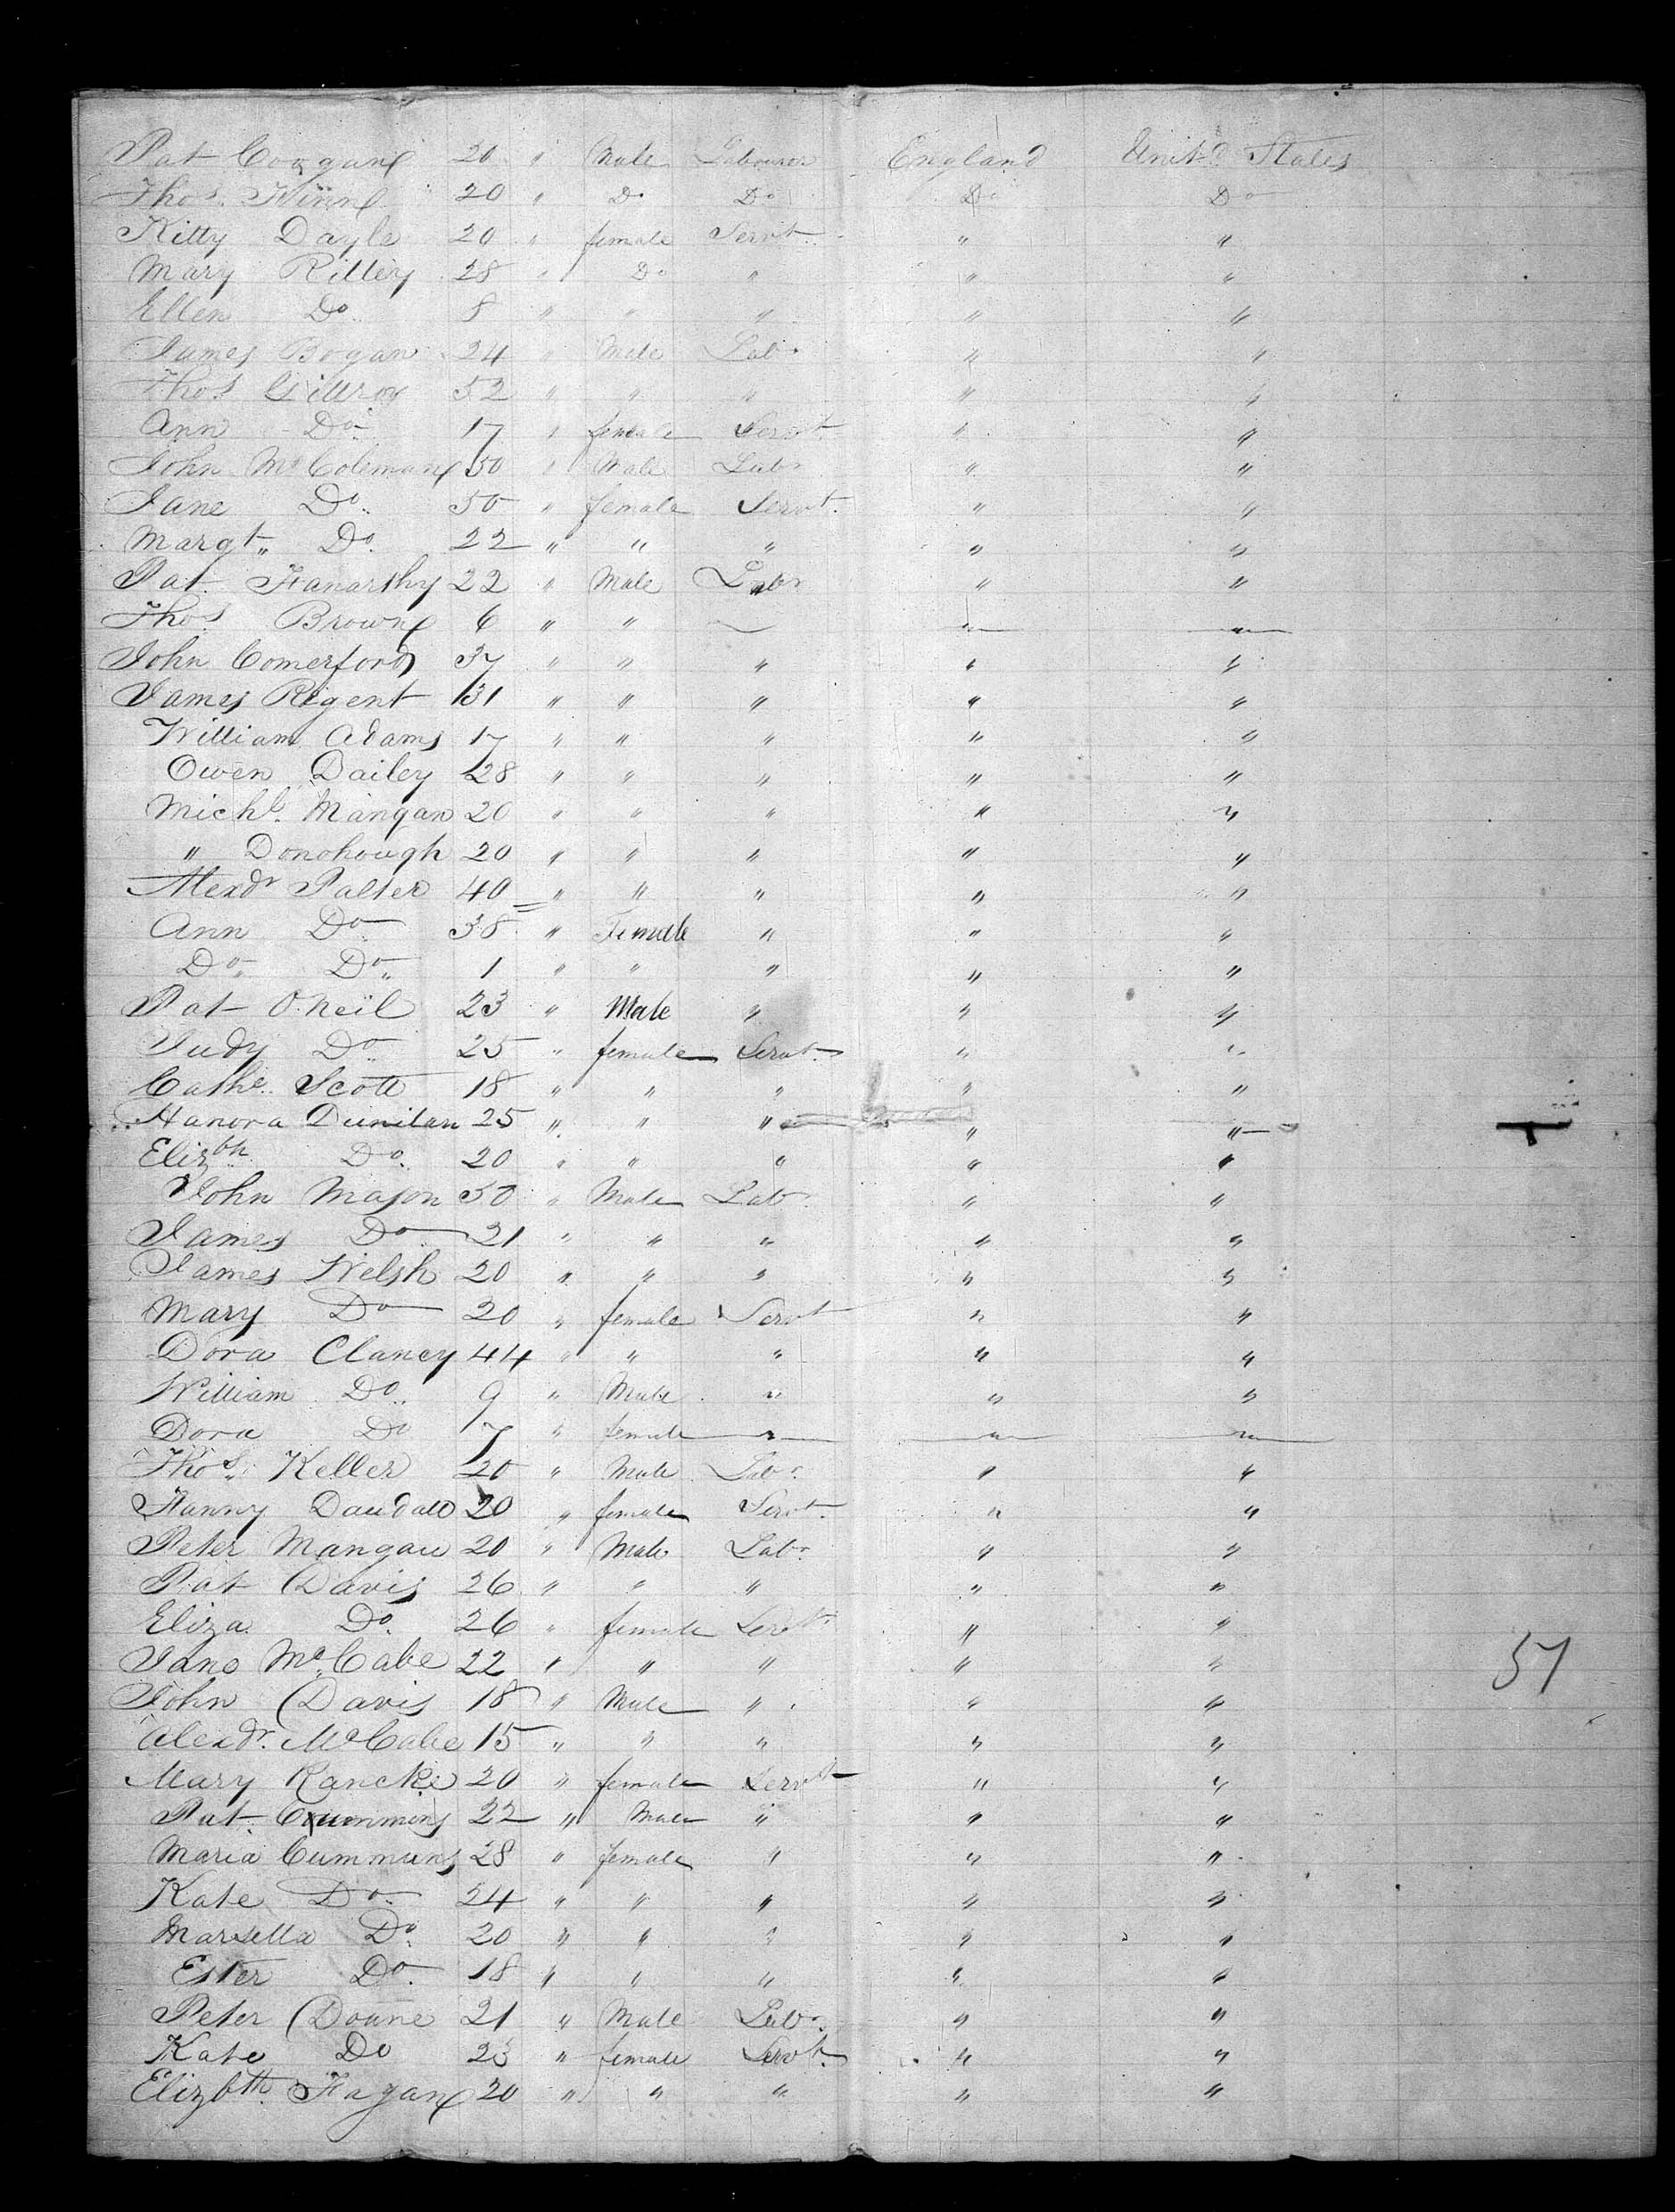 Pat Coogan 20 " Male Labourer England Unitd States
Thos. Finn 20 " Do Do Do Do
Kitty Dayle 20 " female Servt. " "
Mary Rilley 28 " Do " " "
Ellen Do 8 " " " " "
James Bogan 24 " Male Labr " "
Thos Gillroy 52 " " " " "
Ann Do 17 " female Servt. " "
John Mc Coleman 50 " Male Labr " "
Jane Do. 50 " female Servt. " "
Margt. Do. 22 " " " " "
Pat. Fanarthy 22 " Male Labr " "
Thos. Brown 6 " " — " "
John Comerford 37 " " " " "
James Regent 31 " " " " "
William Adams 17 " " " " "
Owen Dailey 28 " " " " "
Michl. Mangan 20 " " " " "
" Donohough 20 " " " " "
Alexdr Palter 40 " " " " "
Ann Do 38 " Female " " "
Do. Do. 1 " " " " "
Pat O.Neil 23 " Male " " "
Judy Do. 25 " female Servt. " "
Cathe. Scott 18 " " " " "
Hanora Dunilan 25 " " " " "
Elizbth Do. 20 " " " " "
John Mason 50 " Male Labr. " "
James Do 21 " " " " "
James Welsh 20 " " " " "
Mary Do 20 " female Servt " "
Dora Clancy 44 " " " " "
William Do. 9 " Male " " "
Dora Do 7 " female " " "
Thos. Keller 20 " Male Labr. " "
Fanny Daudall 20 " female Servt. " "
Peter Mangan 20 " Male Labr. " "
Pat Davis 26 " " " " "
Eliza Do. 26 " female Servt. " "
Jane Mc.Cabe 22 " " " " " 57
John Davis 18 " Male " " "
Alexdr. McCabe 15 " " " " "
Mary Rancke 20 " female Servt " "
Pat. Cummins 22 " Male " " "
Maria Cummins 28 " female " " "
Kate Do. 24 " " " " "
Marsella Do. 20 " " " " "
Ester Do. 18 " " " " "
Peter Doane 21 " Male Labr. " "
Kate Do 23 " female Servt. " "
Elizbth. Fagan 20 " " " " "